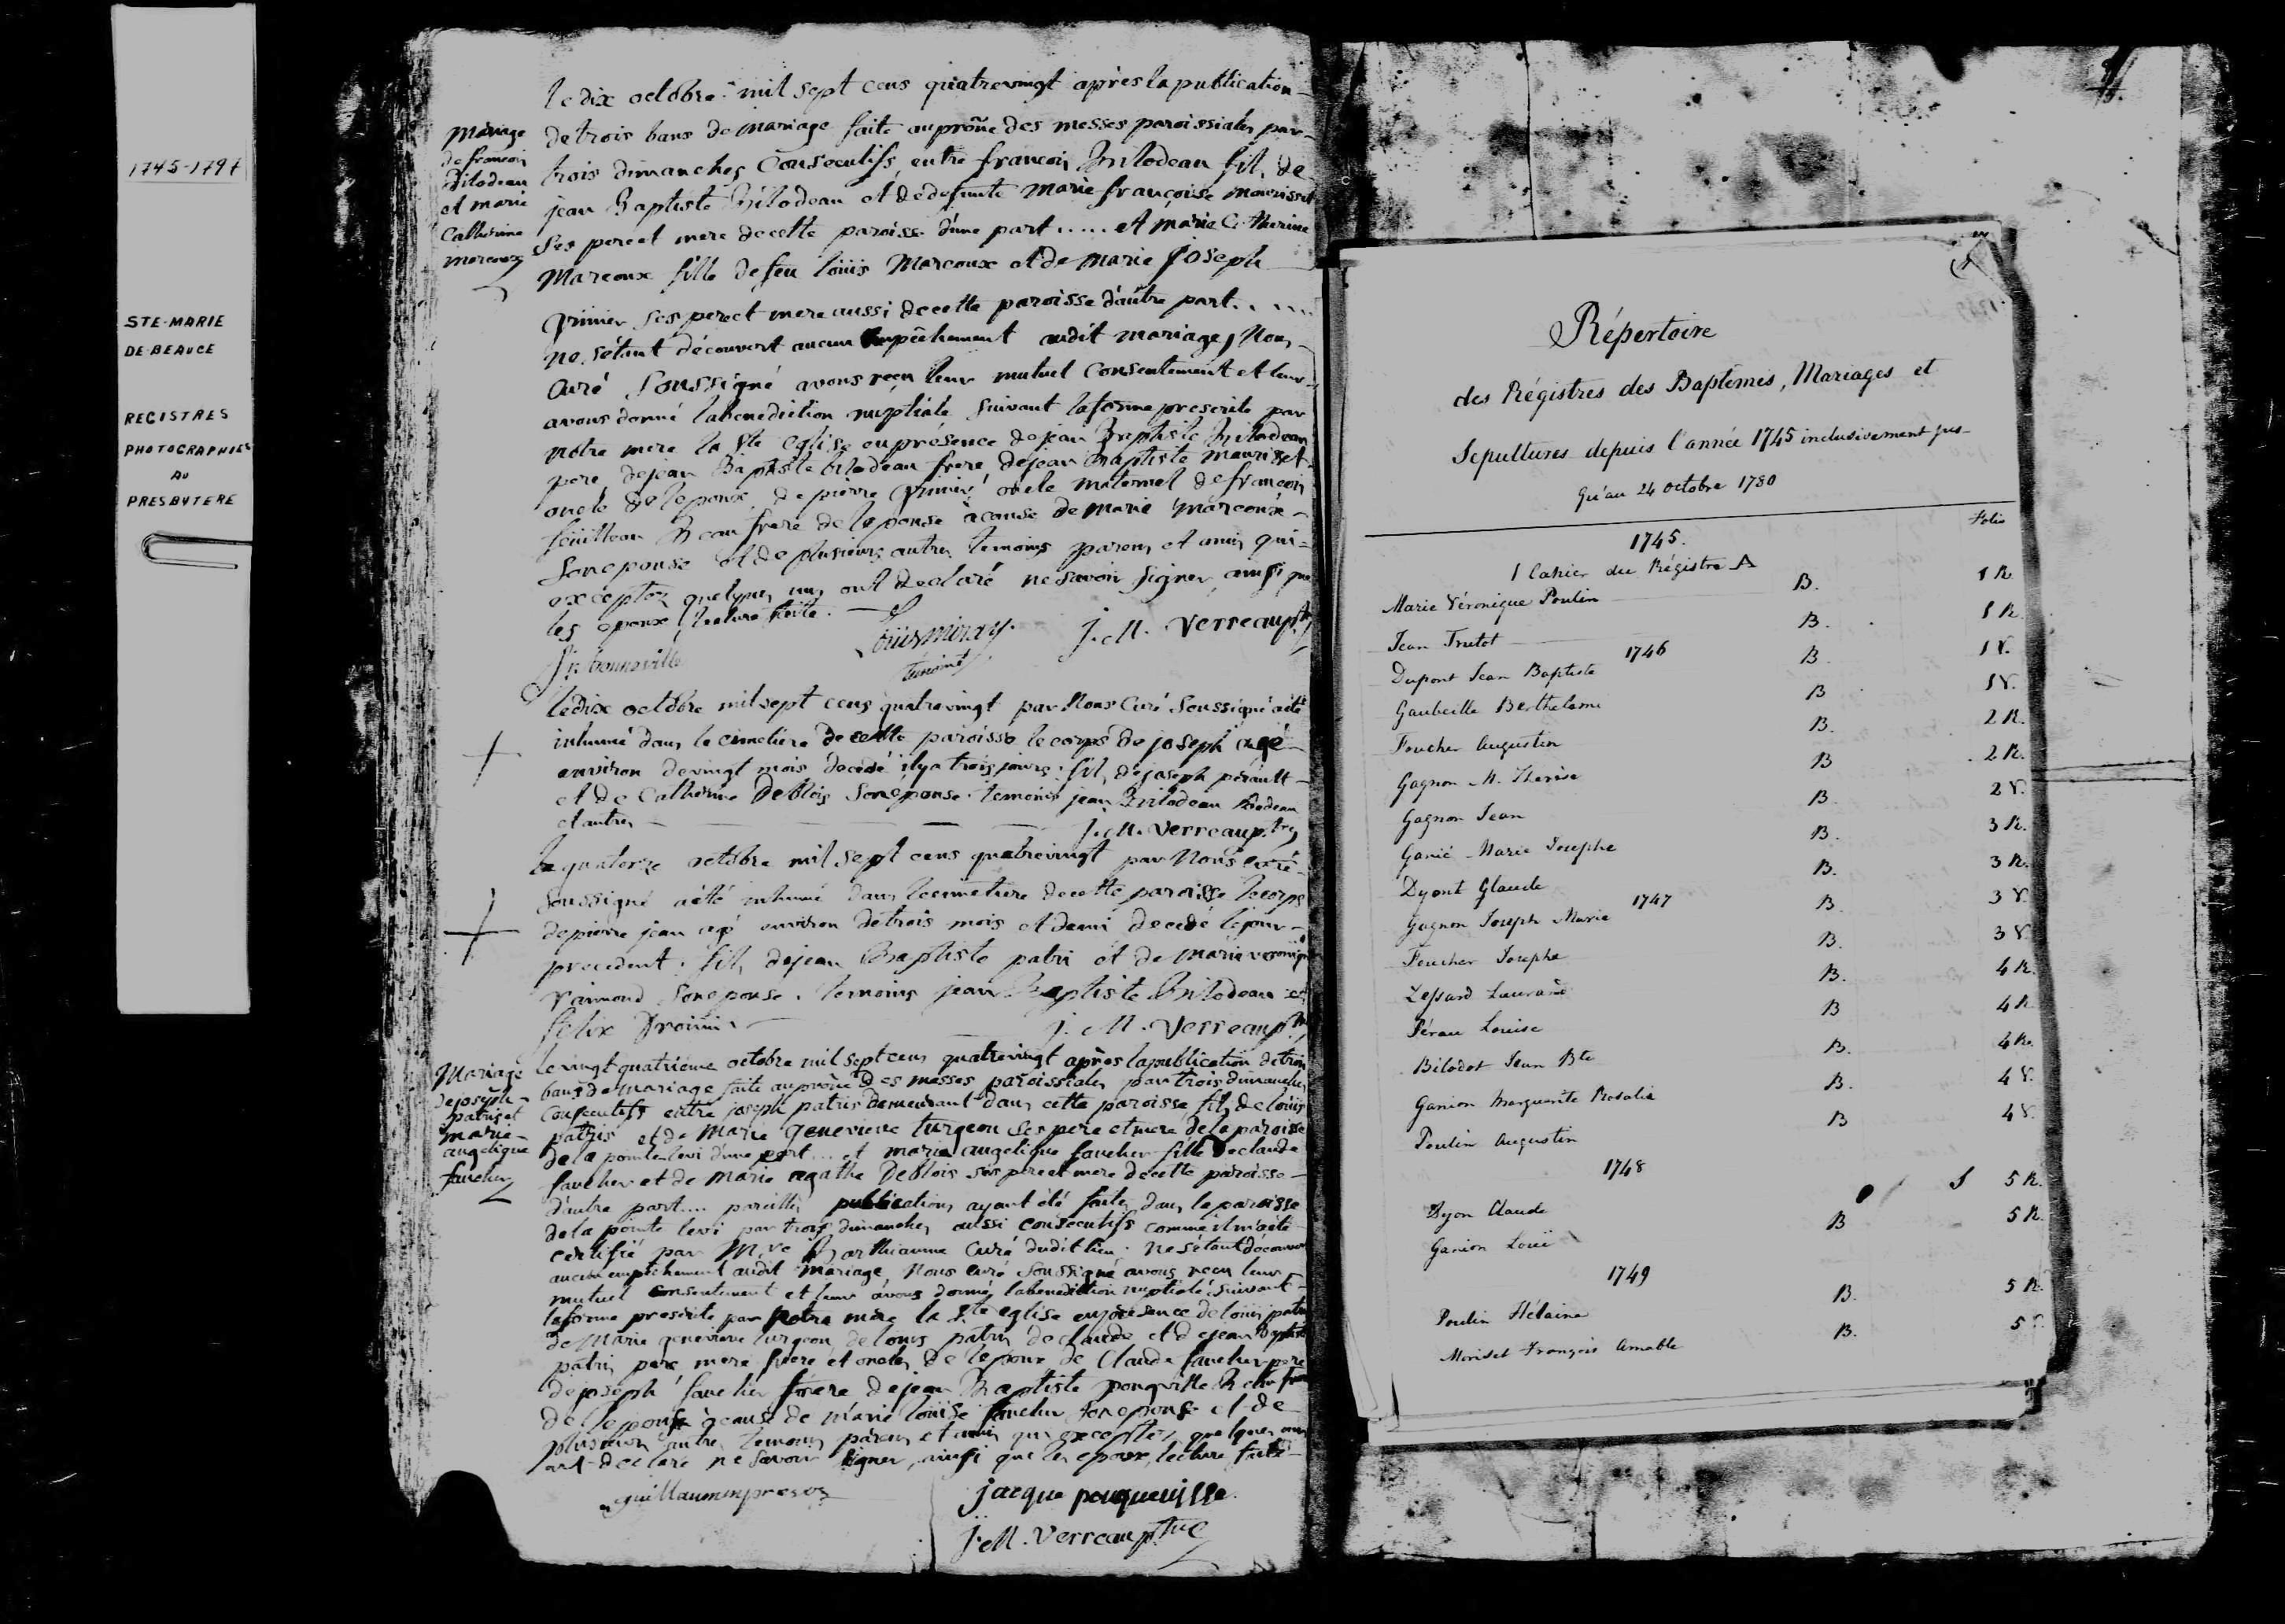 1745-1797
STE-MARIE
DE-BEAUCE
REGISTRES
PHOTOGRAPHIES
AU
PRESBYTERE
le dix octobre mil sept cens quatrevingt après la publication
de trois bans de mariage faite au prône des messes paroissiales par
trois dimanches consecutifs, entre francois Bilodeau fils de
jean Baptiste Bilodeau et de defunte marie françoise maurisset
ses pere et mere de cette paroisse d'une part..... et marie Catherine
Marcoux fille de feu loüis Marcoux et de marie joseph
grinier ses pere et mere aussi de cette paroisse d'autre part.....
ne s'étant découvert aucun Empêchement audit mariage, Nous
Curé soussigné avons reçu leur mutuel Consentement et leur
avons donné la benediction nuptiale suivant la forme prescrite par
notre mere la Ste église en présence de jean Baptiste Bilodeau
pere, de jean Baptiste bilodeau frere, de jean Baptiste maurisset
oncle de lepoux, de pierre grinier oncle maternel de francois
feüilleau Beaufrere de lepouse à cause de marie marcoux
son epouse et de plusieurs autres temoins parens et amis qui
exceptez quelques uns ont declaré ne savoir signer, ainsi que
les epoux, lecture faite.
Louis miray. j. M. Verreau ptre
temoins
mariage
de francois
Bilodeau
et marie
Catherine
marcoux
le dix octobre mil sept cens quatrevingt par Nous Curé Soussigné a été
inhumé dans le cimetiere de cette paroisse le corps de joseph agé
environ de vingt mois decedé il y a trois jours, fils de joseph perault
et de Catherine Deblois son epouse. temoins jean Bilodeau Bedeau
et autres J. M. Verreau ptre
le quatorze octobre mil sept cens quatrevingt par Nous curé
soussigné a été inhumé dans le cimetiere de cette paroisse le corps
de pierre jean agé environ de trois mois et demi decedé le jour
precedent, fils de jean Baptiste patri et de marie veronique
raimond son epouse. temoins jean Baptiste Bilodeau et
felix Drouin j. M. Verreau ptre
Mariage
de joseph
patris et
marie
angelique
faucher
le vingt quatrieme octobre mil sept cens quatrevingt après la publication de trois
bans de mariage faite au prône des messes paroissiales par trois dimanches
consecutifs entre joseph patris demeurant dans cette paroisse, fils de loüis
patris et de Marie genevieve turgeon ses pere et mere de la paroisse
de la pointe levi d'une part... et marie angelique faucher fille de claude
faucher et de marie agathe Deblois ses pere et mere de cette paroisse
d'autre part.... pareilles publications ayant été faites dans la paroisse
de la pointe levi par trois dimanches aussi consecutifs comme il m'a été
certifié par Mre Berthiaume Curé dudit lieu. ne s'étant découvert
aucun empêchement audit mariage, Nous curé soussigné avons reçu leur
mutuel consentement et leur avons donné la benediction nuptiale suivant
la forme prescrite par notre mère la Ste eglise en présence de loüis patris
de Marie genevieve turgeon, de louis patris de claude et de jean Baptiste
patris pere mere frere et oncles de lepoux de Claude faucher pere
de joseph faucher frere de jean Baptiste pouqville Beaufrere
de lepouse à cause de marie loüise faucher son epouse et de
plusieurs autres temoins parens et amis qui exceptés quelques uns
ont declaré ne savoir signer, ainsi que les epoux, lecture faite
jacque pouqueville
J. M. Verreau ptre
Répertoire
des Régistres des Baptêmes, Mariages et
Sepultures depuis l'année 1745 inclusivement jus-
qu'au 24 Octobre 1780
Folio
1745.
1 Cahier du Régistre A
Marie Véronique Poulin B. 1 R.
Jean Trutot B. 1 R.
1746
Dupont Jean Baptiste B. 1 V.
Gaubeille Berthelemi B 1 V.
Foucher Augustin B. 2 R.
Gagnon M. Therèse B 2 R.
Gagnon Jean B. 2 V.
Ganié Marie Josephe B. 3 R.
Dyont Glaude B. 3 R.
1747
Gagnon Joseph Marie B. 3 V.
Foucher Josephe B. 3 V.
Lessard Laurand B. 4 R.
Pérau Louise B 4 R.
Bilodot Jean Bte B. 4 R.
Ganion Marguerite Rosalie B. 4 V.
Poulin Augustin B 4 V.
1748
Dyon Claude S 5 R.
Ganion Louï B 5 R.
1749
Poulin Hélaine B. 5 R.
Moriset François Amable B. 5